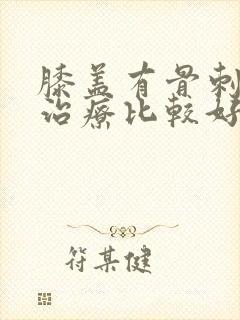 膝盖有骨刺
治療比較好
符某健